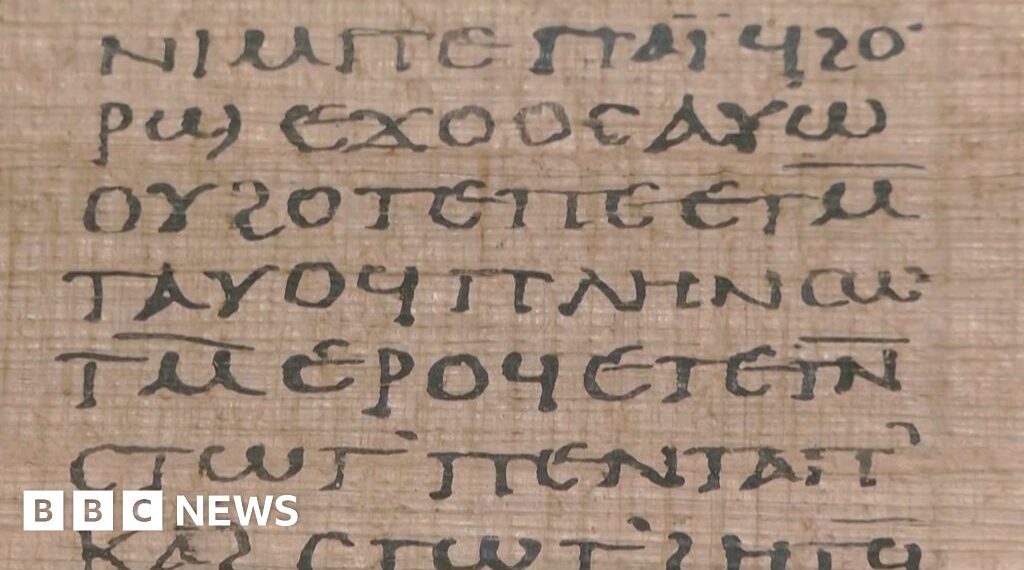 ⲛⲓⲙⲡⲉ ⲡⲁⲓ̈ ϥϩⲟ
ⲣϣ ⲉϫⲟⲟⲥ ⲁⲩⲱ
ⲟⲩϩⲟⲧⲉ ⲡⲉ ⲉⲧⲙ̄
ⲧⲁⲩⲟϥ ⲡⲗⲏⲛ ⲥⲱ
ⲧⲙ̄ ⲉⲣⲟϥ ⲉⲧⲉⲧⲛ̄
ⲥⲧⲱⲧ' ⲡⲉⲛⲧⲁⲡ'
ⲕⲁϩ ⲥⲧⲱⲧ' ϩⲏⲧϥ̄
BBC NEWS